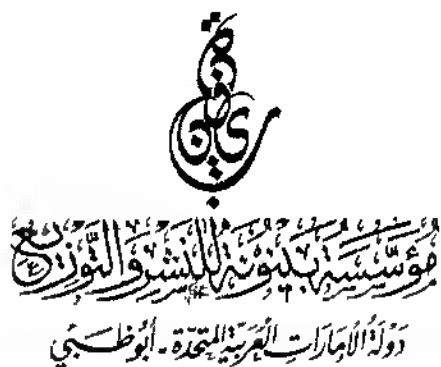 مؤسسة بينونة للنشر والتوزيع
دولة الإمارات العربية المتحدة - أبوظبي